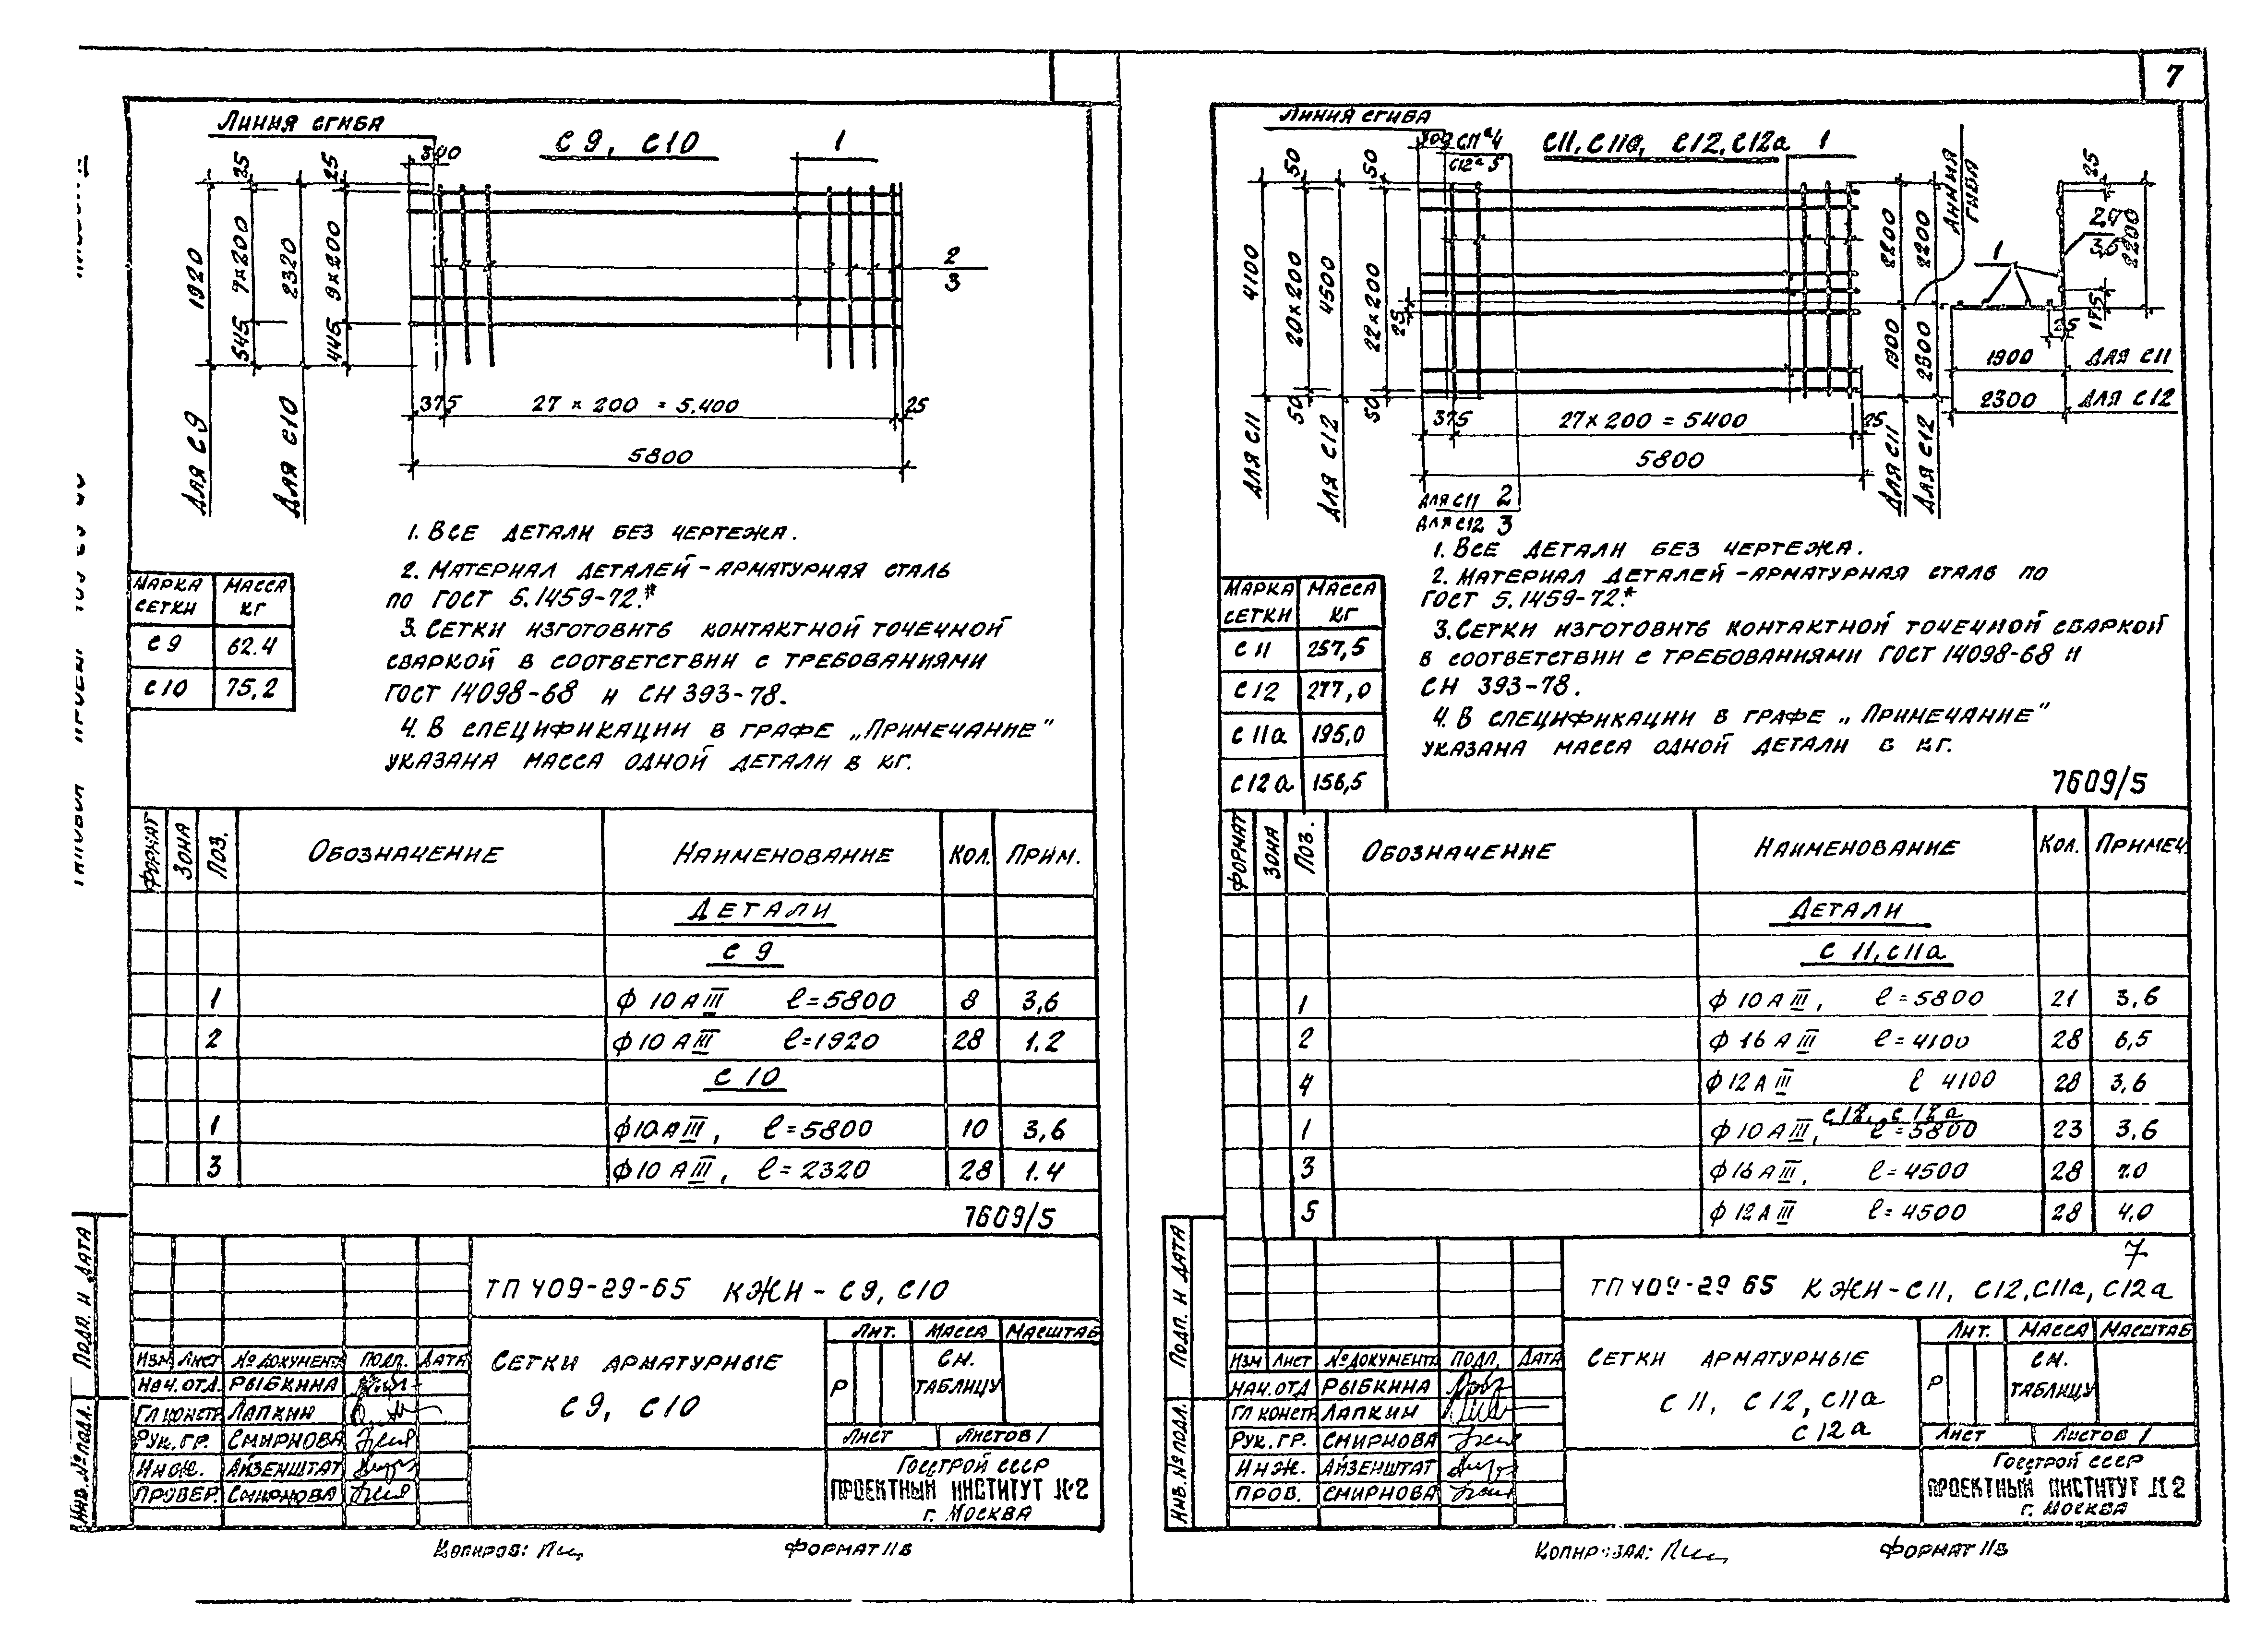 7
Линия сгиба
С 9, С10
1
340
1920
25
7×200
545
2320
25
9×200
445
2
3
375
27 × 200 = 5.400
25
5800
Для С9
Для С10
1. Все детали без чертежа.
2. Материал деталей - арматурная сталь
по ГОСТ 5.1459-72.*
3. Сетки изготовить контактной точечной
сваркой в соответствии с требованиями
ГОСТ 14098-68 и СН 393-78.
4. В спецификации в графе „Примечание"
указана масса одной детали в кг.
Марка сетки Масса кг
С 9 62.4
С10 75,2
Формат Зона Поз. Обозначение Наименование Кол. Прим.
Детали
С 9
1 ф 10 А III ℓ=5800 8 3,6
2 ф 10 А III ℓ=1920 28 1.2
С 10
1 ф10 А III, ℓ=5800 10 3,6
3 ф10 А III, ℓ=2320 28 1.4
7609/5
Подп. и дата
Инв. № подл.
ТП 409-29-65 КЖИ - С9, С10
Изм Лист № документа Подп. Дата
Нач. отд. Рыбкина
Гл констр Лапкин
Рук. гр. Смирнова
Инж. Айзенштат
Провер Смирнова
Сетки арматурные
С 9, С 10
Лит. Масса Масштаб
Р См. таблицу
Лист Листов 1
Госстрой СССР
ПРОЕКТНЫЙ ИНСТИТУТ №2
г. Москва
Копиров:
Формат 11в
Линия сгиба
С11, С11а, С12, С12а
1
С11а 4
С12а 5
4100
50
20×200
50
4500
50
22×200
50
25
2200
2200
1900
2300
Линия
гиба
1
25
2200
175
25
1900 Для С11
2300 Для С12
375
27 × 200 = 5400
25
5800
Для С11
Для С12
Для С11
Для С12
Для С11 2
Для С12 3
1. Все детали без чертежа.
2. Материал деталей - арматурная сталь по
ГОСТ 5.1459-72.*
3. Сетки изготовить контактной точечной сваркой
в соответствии с требованиями ГОСТ 14098-68 и
СН 393-78.
4. В спецификации в графе „Примечание"
указана масса одной детали в кг.
Марка сетки Масса кг
С 11 257,5
С 12 277,0
С 11а 195,0
С 12а 156,5
7609/5
Формат Зона Поз. Обозначение Наименование Кол. Примеч.
Детали
С 11, С11а
1 ф 10 А III, ℓ=5800 21 3,6
2 ф 16 А III ℓ=4100 28 6,5
4 ф 12 А III ℓ 4100 28 3,6
С 12, С 12а
1 ф 10 А III, ℓ=5800 23 3,6
3 ф 16 А III, ℓ=4500 28 7.0
5 ф 12 А III ℓ=4500 28 4,0
7
Подп. и дата
Инв. № подл.
ТП 409-29 65 КЖИ - С11, С12, С11а, С12а
Изм Лист № документа Подп. Дата
Нач. отд Рыбкина
Гл констр. Лапкин
Рук. гр. Смирнова
Инж. Айзенштат
Пров. Смирнова
Сетки арматурные
С 11, С 12, С11а
С 12а
Лит. Масса Масштаб
Р См. таблицу
Лист Листов 1
Госстрой СССР
ПРОЕКТНЫЙ ИНСТИТУТ №2
г. Москва
Формат 11в